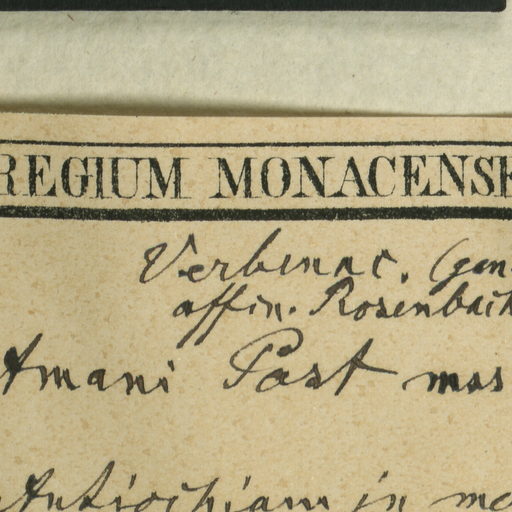 REGIUM MONACENSE
Verbenac. (gen.
affin. Rosenbach
Amani Post mss
Antiochiam in mo